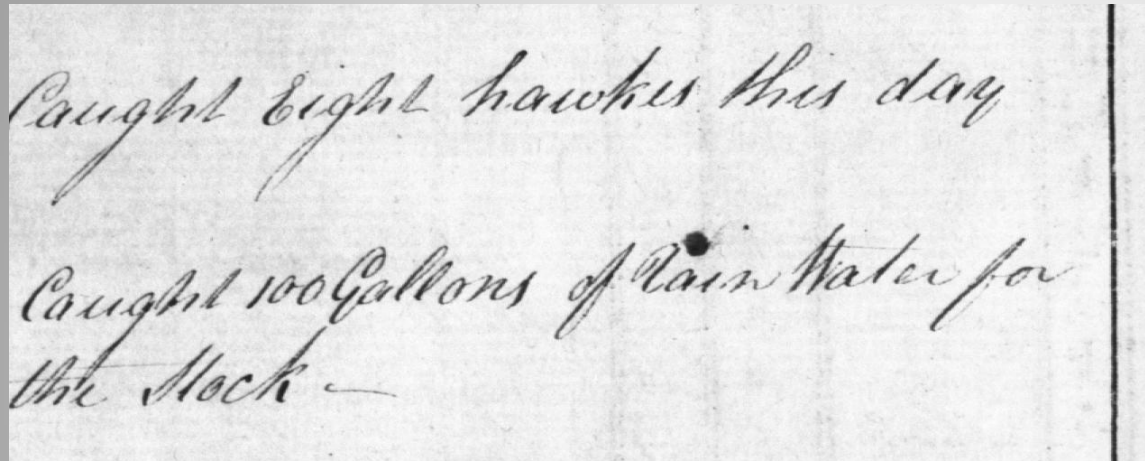 Caught Eight hawkes this day
Caught 100 Gallons of Rain Water for
the Stock —